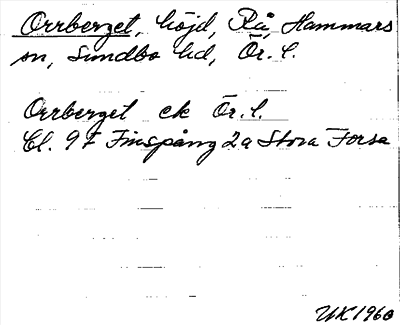 Orrberget, höjd, Rå, Hammars
sn, Sundbo hd, Ör. l.
Orrberget ek Ör. l.
Bl. 9F Finspång 2a Stora Forsa
UK 1960